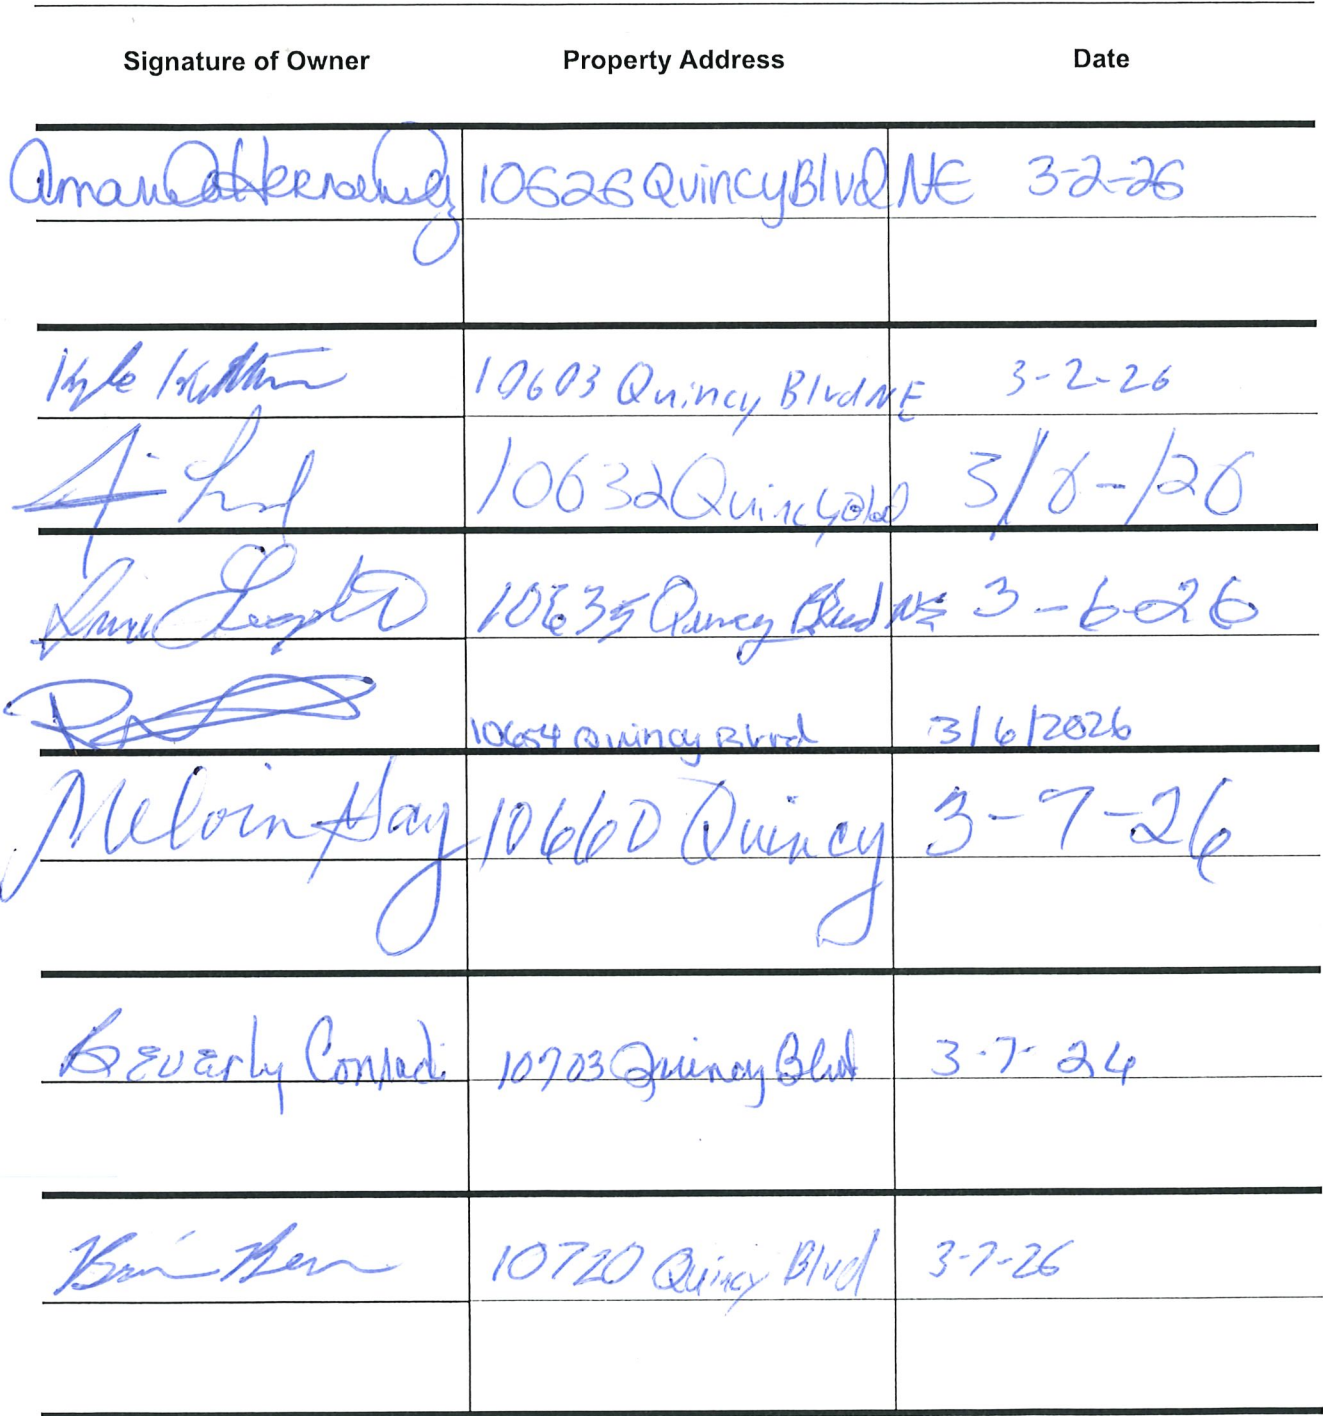 Signature of Owner Property Address Date
Amanda Hernandez 10626 Quincy Blvd NE 3-2-26
Kyle 10603 Quincy Blvd NE 3-2-26
10632 Quincy Blvd 3/6-/26
10635 Quincy Blvd NE 3-6-26
10654 Quincy Blvd 3/6/2026
Melvin Hay 10660 Quincy 3-7-26
Beverly Conradi 10703 Quincy Blvd 3-7-26
10720 Quincy Blvd 3-7-26